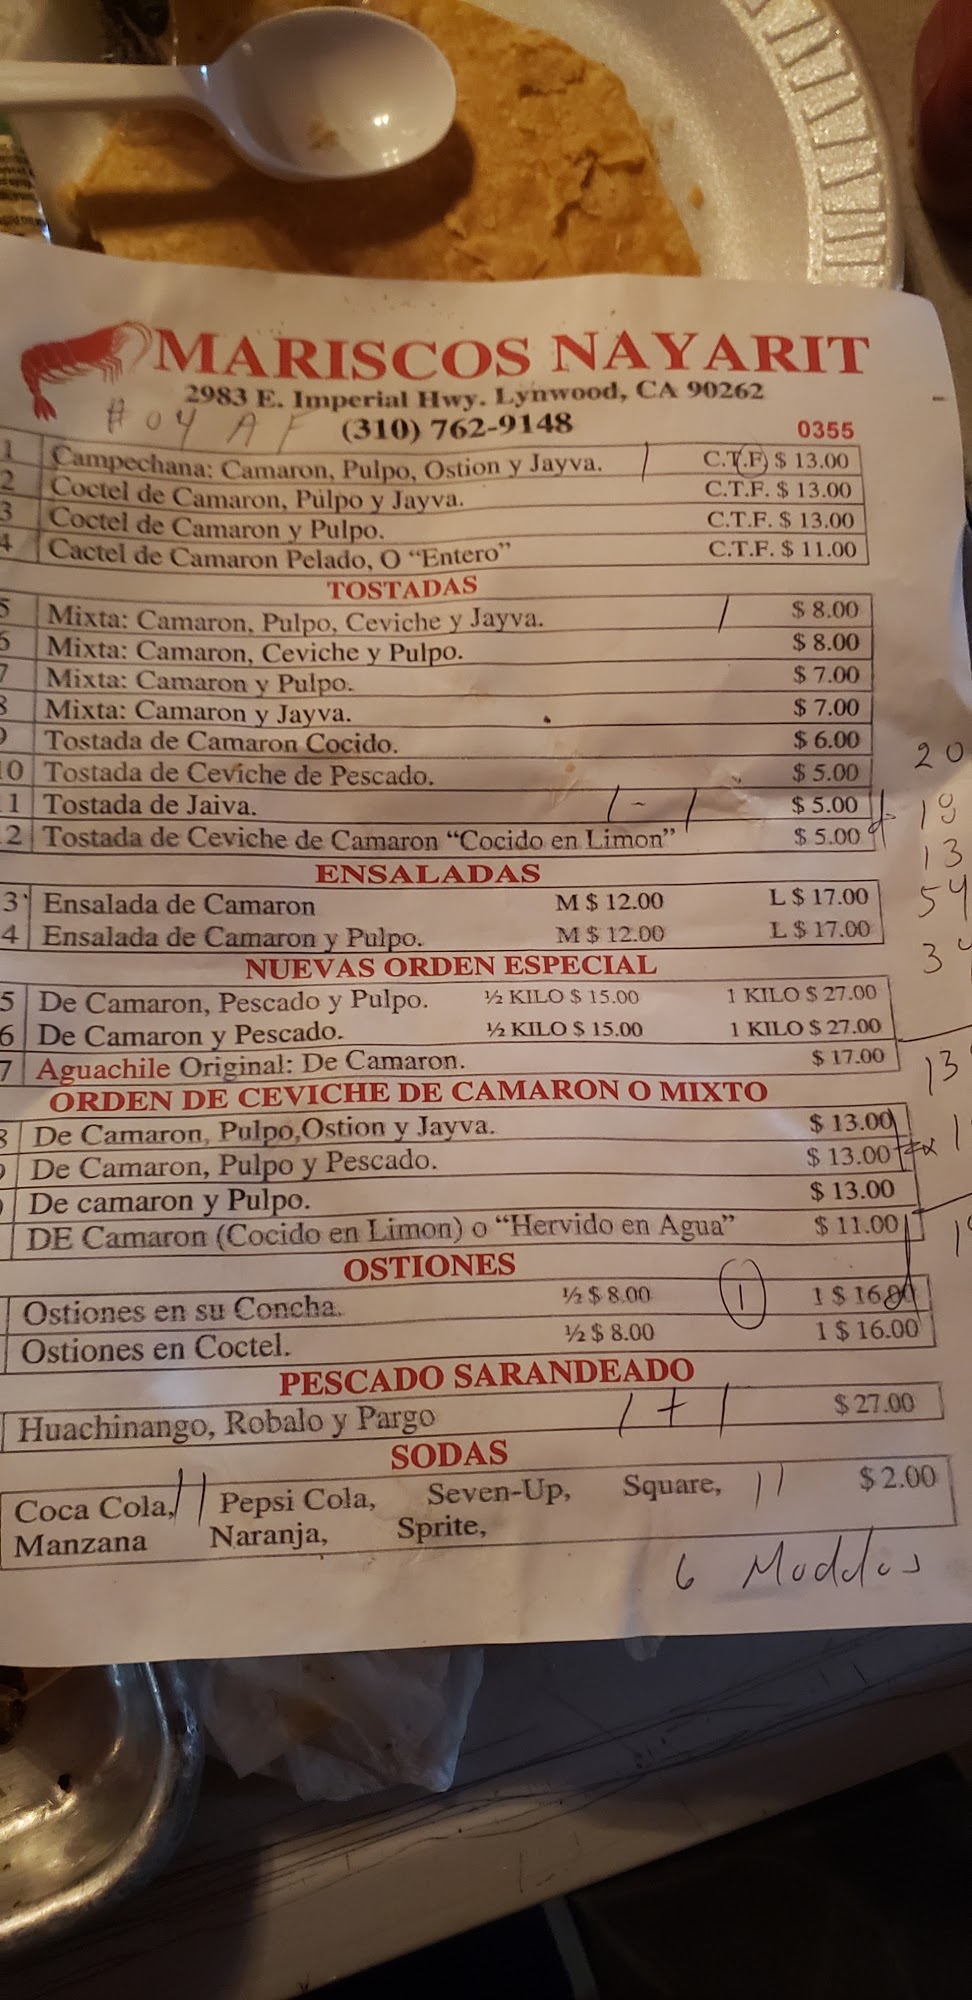 MARISCOS NAYARIT
2983 E. Imperial Hwy. Lynwood, CA 90262
#04 AF (310) 762-9148 0355
1 Campechana: Camaron, Pulpo, Ostion y Jayva. C.T.F. $ 13.00
2 Coctel de Camaron, Pulpo y Jayva. C.T.F. $ 13.00
3 Coctel de Camaron y Pulpo. C.T.F. $ 13.00
4 Cactel de Camaron Pelado, O "Entero" C.T.F. $ 11.00
TOSTADAS
5 Mixta: Camaron, Pulpo, Ceviche y Jayva. $ 8.00
6 Mixta: Camaron, Ceviche y Pulpo. $ 8.00
7 Mixta: Camaron y Pulpo. $ 7.00
8 Mixta: Camaron y Jayva. $ 7.00
9 Tostada de Camaron Cocido. $ 6.00
10 Tostada de Ceviche de Pescado. $ 5.00 20
1 Tostada de Jaiva. 1 - 1 $ 5.00 19
2 Tostada de Ceviche de Camaron "Cocido en Limon" $ 5.00 13
ENSALADAS
3 Ensalada de Camaron M $ 12.00 L $ 17.00 54
4 Ensalada de Camaron y Pulpo. M $ 12.00 L $ 17.00
NUEVAS ORDEN ESPECIAL
5 De Camaron, Pescado y Pulpo. ½ KILO $ 15.00 1 KILO $ 27.00
6 De Camaron y Pescado. ½ KILO $ 15.00 1 KILO $ 27.00
7 Aguachile Original: De Camaron. $ 17.00
ORDEN DE CEVICHE DE CAMARON O MIXTO
De Camaron, Pulpo,Ostion y Jayva. $ 13.00
De Camaron, Pulpo y Pescado. $ 13.00
De camaron y Pulpo. $ 13.00
DE Camaron (Cocido en Limon) o "Hervido en Agua" $ 11.00
OSTIONES
Ostiones en su Concha. ½ $ 8.00 1 1 $ 16.00
Ostiones en Coctel. ½ $ 8.00 1 $ 16.00
PESCADO SARANDEADO
Huachinango, Robalo y Pargo 1 + 1 $ 27.00
SODAS
Coca Cola, 11 Pepsi Cola, Seven-Up, Square, 11 $ 2.00
Manzana Naranja, Sprite,
6 Modelos